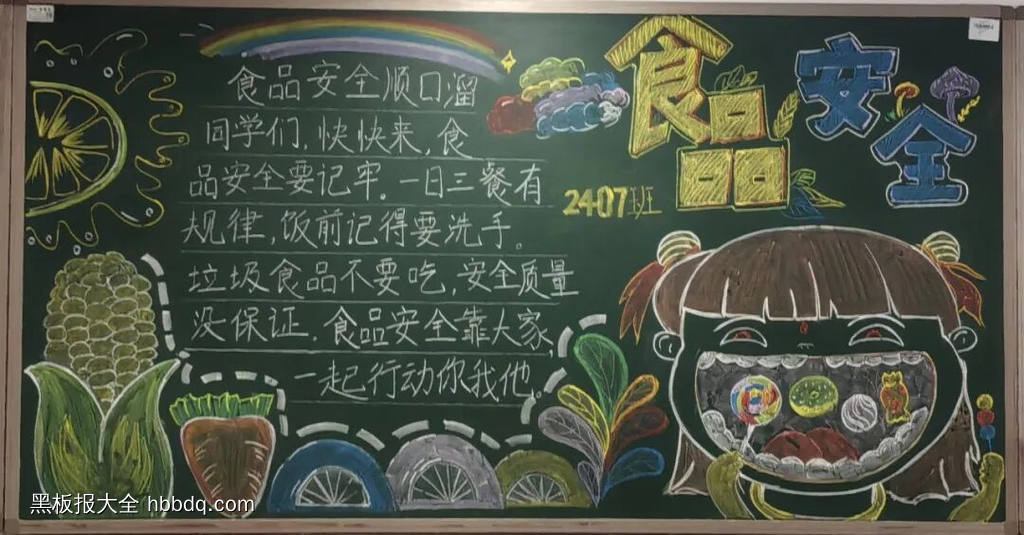 食品安全
2407班
食品安全顺口溜
同学们,快快来,食
品安全要记牢。一日三餐有
规律,饭前记得要洗手。
垃圾食品不要吃,安全质量
没保证.食品安全靠大家,
一起行动你我他。
黑板报大全 hbbdq.com